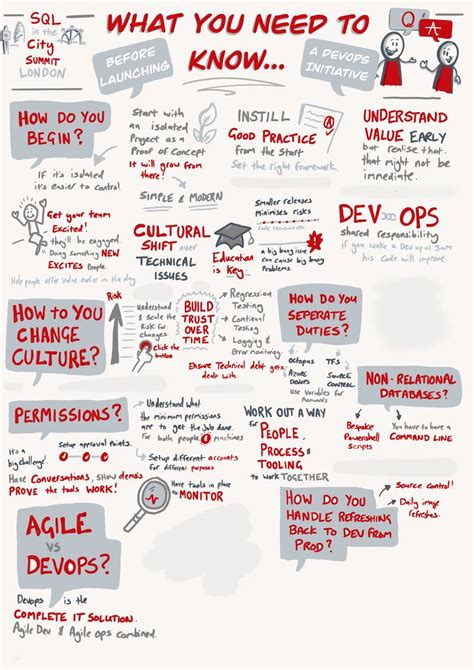 SQL
in the
City
SUMMIT
LONDON
WHAT YOU NEED TO
KNOW...
BEFORE
LAUNCHING
A DEVOPS
INITIATIVE
Q
A
HOW DO YOU
BEGIN?
If it's isolated
it's easier to control.
Start with
an isolated
Project as a
Proof of Concept
It will grow from
there!
SIMPLE & MODERN
INSTILL
GOOD PRACTICE
from the Start
Set the right framework.
UNDERSTAND
VALUE EARLY
but realise that
that might not be
immediate.
Get your team
Excited!
they'll be engaged.
Doing something NEW
EXCITES People.
Help people offer value earlier in the day
CULTURAL
SHIFT over
TECHNICAL
ISSUES
Education
is Key
Smaller releases
Minimises risks
code reviews etc
a big bang issue
can cause big bang
Problems.
DEV OPS
shared responsibility
if you wake a Dev up at 3am
his Code will improve.
HOW TO YOU
CHANGE
CULTURE?
Risk
Understand
& Scale the
Risk for
changes
Click the
button
BUILD
TRUST
OVER
TIME
→ Regression
Testing
→ Continual
Testing
→ Logging &
Error monitoring
Ensure Technical debt gets
dealt with.
HOW DO YOU
SEPERATE
DUTIES?
Octopus
AZURE
DEVOPS
TFS
SOURCE
CONTROL
Use Variables for
Passwords
NON-RELATIONAL
DATABASES?
Bespoke
Powershell
Scripts
You have to have a
COMMAND LINE
PERMISSIONS?
Understand what
the minimum permissions
are to get the Job done.
For both people & machines
It's a
big challenge!
Setup approval Points.
Setup different accounts
for different purposes
Have Conversations, show demo's
PROVE the tools WORK!
Have tools in place
to MONITOR
WORK OUT A WAY
for PEOPLE,
PROCESS &
TOOLING
to work TOGETHER
HOW DO YOU
HANDLE REFRESHING
BACK TO DEV FROM
PROD?
Source control!
Daily image
refreshes.
AGILE
vs
DEVOPS?
Devops is the
COMPLETE IT SOLUTION.
Agile Dev & Agile ops combined.